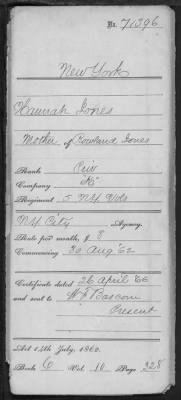 No. 71396
New York
Hannah Jones
Mother of Rowland Jones
Rank Priv
Company "K"
Regiment 5 NY Vols
NY City Agency.
Rate per month, $ 8
Commencing 30 Aug '62
Certificate dated 26 April '66
and sent to H F Bascom
Present
Act 14th July, 1862.
Book C Vol. 10 Page 228